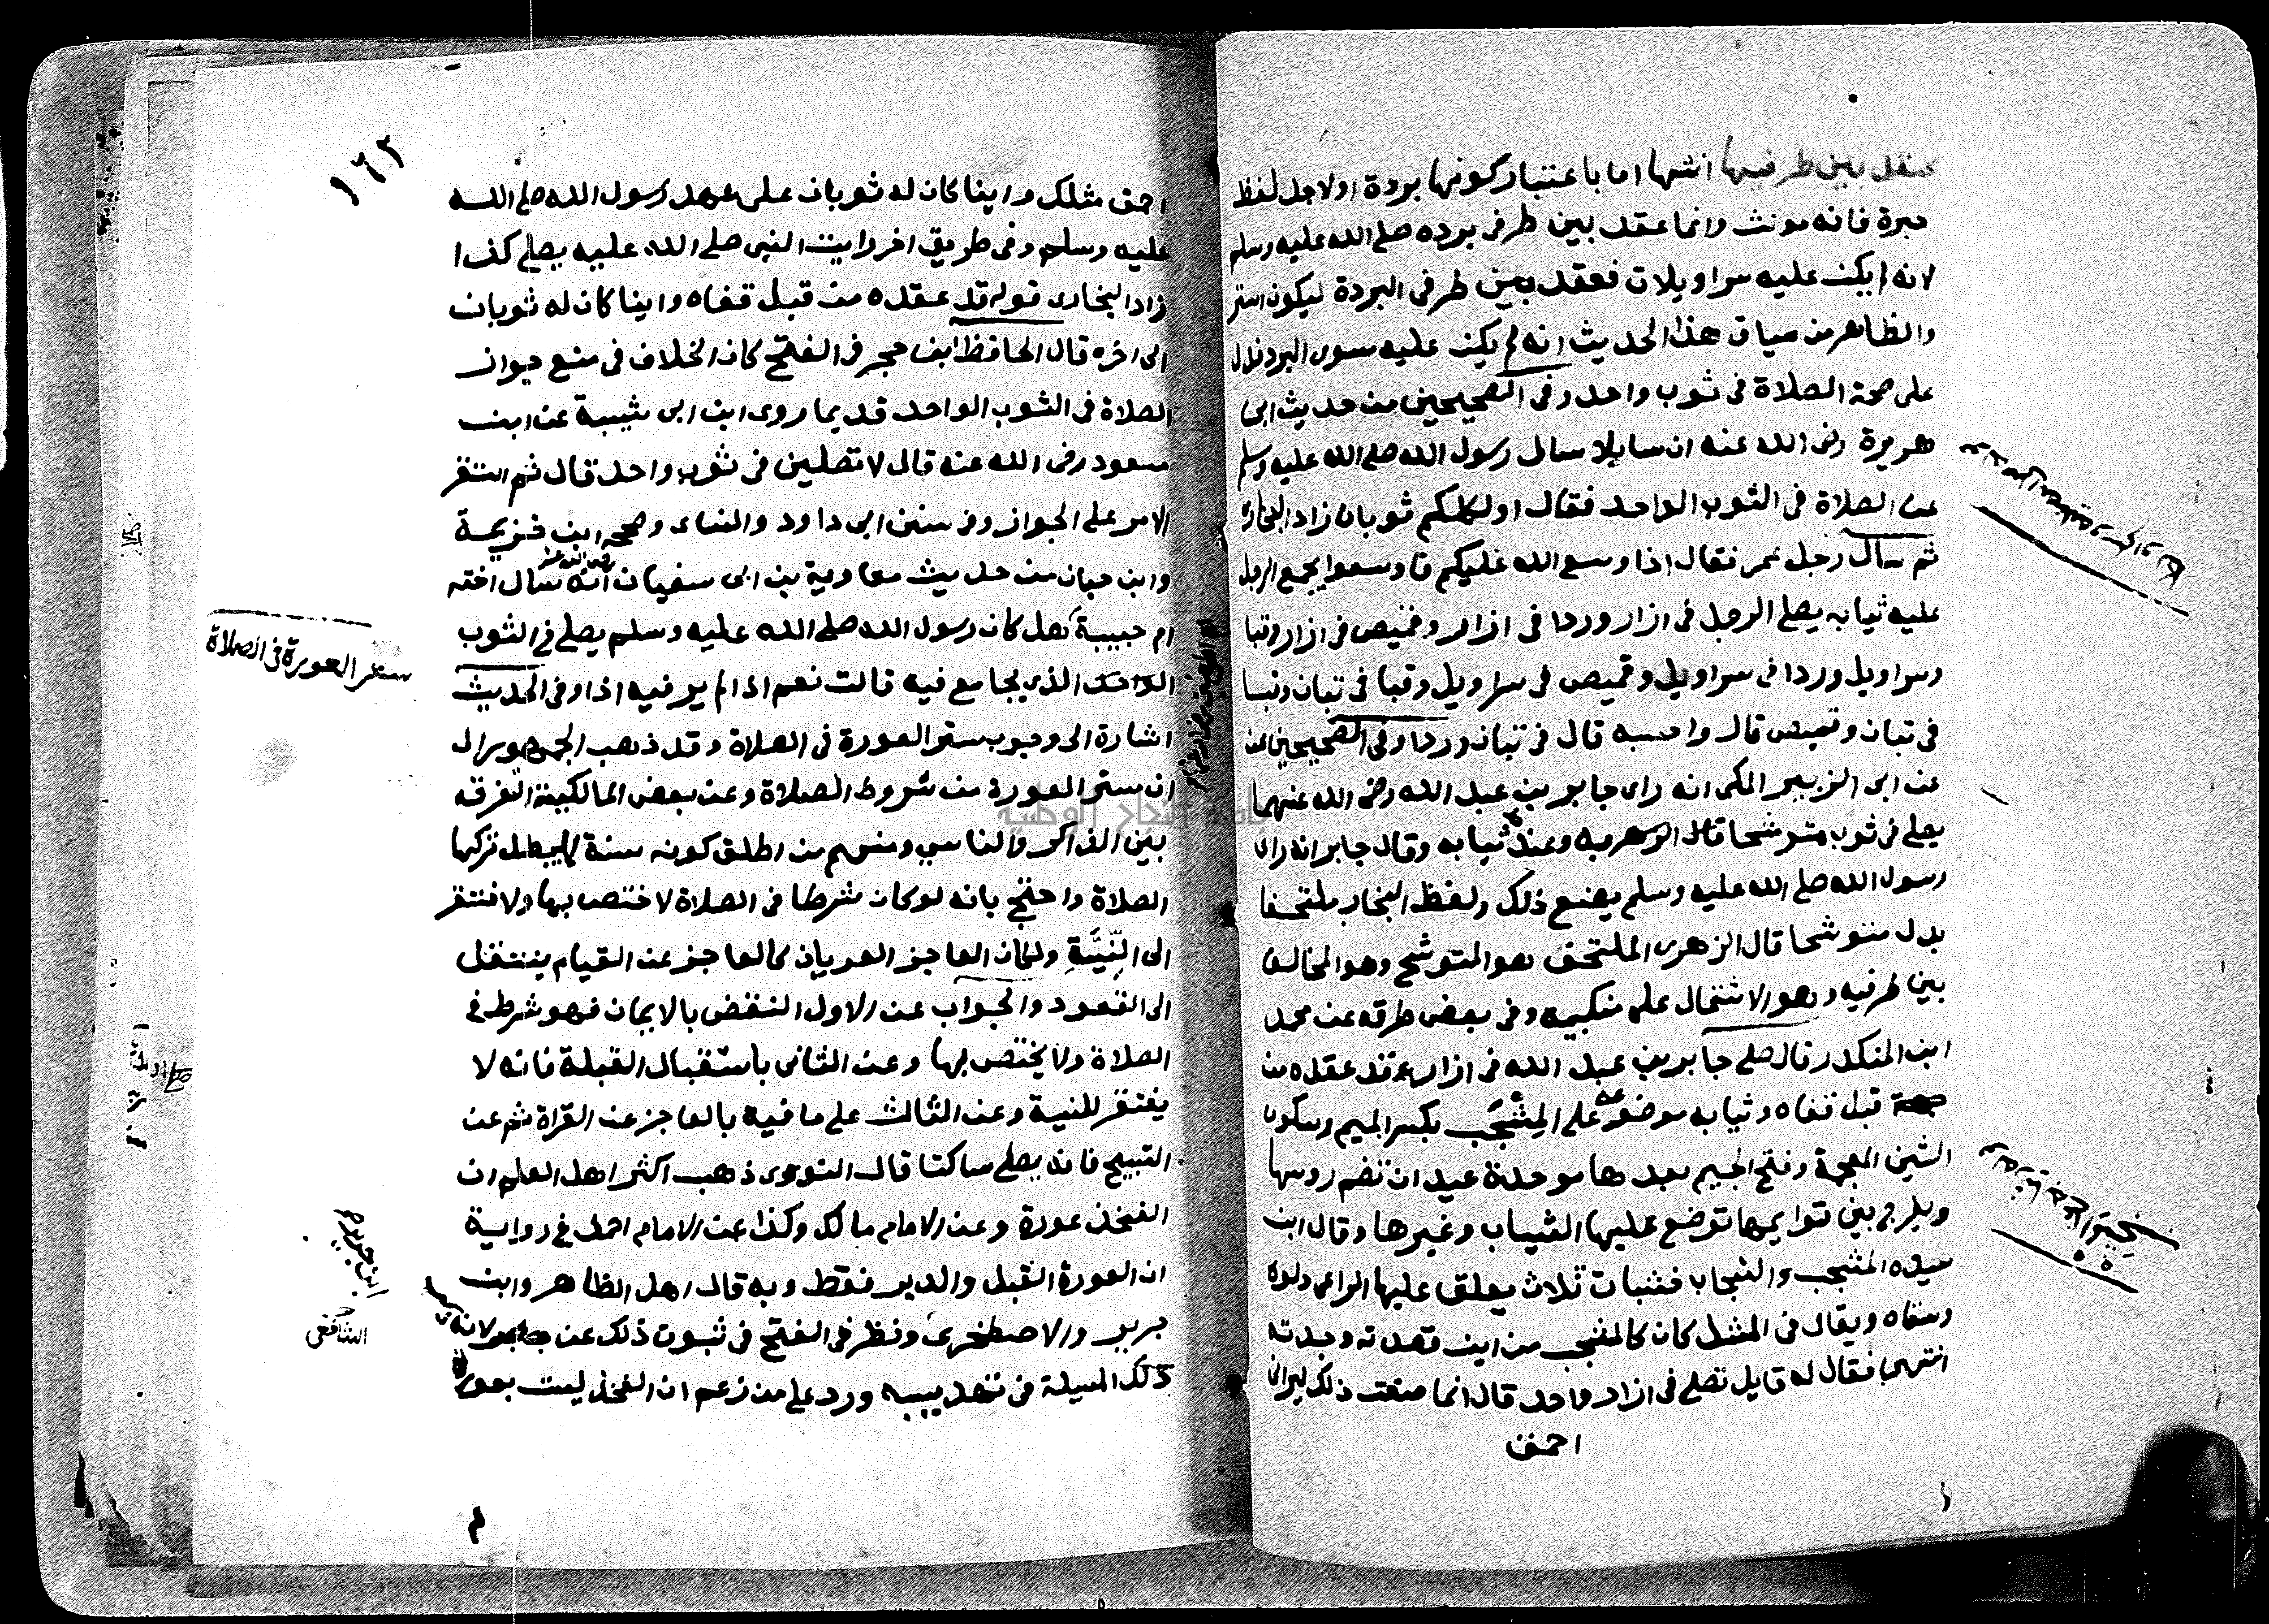 عقد بين طرفيها انثها اما باعتبار كونها بردة اولاجل لفظ
حبرة فانه مونث وانما عقد بين طرفى برده صلى الله عليه وسلم
لانه لم يكن عليه سراويلات فعقد بين طرفى البردة ليكون استر
والظاهر من سياق هذا الحديث انه لم يكن عليه سوى البرد فدل
على صحة الصلاة فى ثوب واحد وفى الصحيحين من حديث ابى
هريرة رضى الله عنه ان سايلا سال رسول الله صلى الله عليه وسلم
عن الصلاة فى الثوب الواحد فقال اولكلكم ثوبان زاد البخارى
ثم سال رجل عمر فقال اذا وسع الله عليكم فاوسعوا يجمع الرجل
عليه ثيابه يصلى الرجل فى ازار وردا فى ازار وقميص فى ازار وقبا
وسراويل وردا فى سراويل وقميص فى سراويل وقبا فى تبان وقبا
فى تبان وقميص قال واحسبه قال فى تبان وردا وفى الصحيحين عن
عن ابى الزبير المكى انه راى جابر بن عبد الله رضى الله عنهما
يصلى فى ثوب متوشحا قال وعنده ثيابه وقال جابر انه راى
رسول الله صلى الله عليه وسلم يصنع ذلك ولفظ البخارى ملتحفا
بدل متوشحا قال الزهرى الملتحف هو المتوشح وهو المخالف
بين طرفيه وهو الاشتمال على منكبيه وفى بعض طرقه عن محمد
ابن المنكدر قال صلى جابر بن عبد الله فى ازار قد عقده من
قبل قفاه وثيابه موضوعة على المِشْجَب بكسر الميم وسكون
الشين المعجمة وفتح الجيم بعدها موحدة عيدان تضم روسها
ويفرج بين قوايمها توضع عليها الثياب وغيرها وقال ابن
سيده المشجب والشجاب خشبات ثلاث يعلق عليها الراعى دلوه
وسقاه ويقال فى المثل كان كالمشجب من اين قصدته وجدته
انتهى فقال له قايل تصلى فى ازار واحد قال انما صنعت ذلك ليرانى
احمق
١٦٢
احمق مثلك واينا كان له ثوبان على عهد رسول الله صلى الله
عليه وسلم وفى طريق اخر رايت النبى صلى الله عليه يصلى كذا
زاد البخارى قوله قد عقده من قبل قفاه واينا كان له ثوبان
الى اخره قال الحافظ ابن حجر فى الفتح كان الخلاف فى منع جواز
الصلاة فى الثوب الواحد قديما روى ابن ابى شيبة عن ابن
مسعود رضى الله عنه قال لا تصلين فى ثوب واحد قال ثم استقر
الامر على الجواز وفى سنن ابى داود والنساى وصححه ابن خزيمة
وابن حبان من حديث معاوية بن ابى سفيان رضى الله عنه انه سال اخته
ام حبيبة هل كان رسول الله صلى الله عليه وسلم يصلى فى الثوب
الواحد الذى يجامع فيه قالت نعم اذا لم ير فيه اذا وفى الحديث
اشارة الى وجوب ستر العورة فى الصلاة وقد ذهب الجمهور الى
ان ستر العورة من شروط الصلاة وعن بعض المالكية التفرقه
بين الذاكر والناسي ومنهم من اطلق كونه سنة لا يبطل تركها
الصلاة واحتج بانه لو كان شرطا فى الصلاة لاختص بها ولافتقر
الى النِّيَّةِ ولكان العاجز العريان كالعاجز عن القيام ينتقل
الى القعود والجواب عن الاول النقض بالايمان فهو شرط فى
الصلاة ولا يختص بها وعن الثانى باستقبال القبلة فانه لا
يفتقر للنية وعن الثالث على ما فيه بالعاجز عن القراة ثم عن
التسبيح فانه يصلى ساكتا قال النووى ذهب اكثر اهل العلم ان
الفخذ عورة وعن الامام مالك وكذا عن الامام احمد فى رواية
ان العورة القبل والدبر فقط وبه قال اهل الظاهر وابن
جرير والاصطخرى ونظر فى الفتح فى ثبوت ذلك عن لانه
ذلك المسيلة فى تهذيبه ورد على من زعم ان الفخذ ليست بعورة
ستر العورة فى الصلاة
ابن جرير
الشافعى